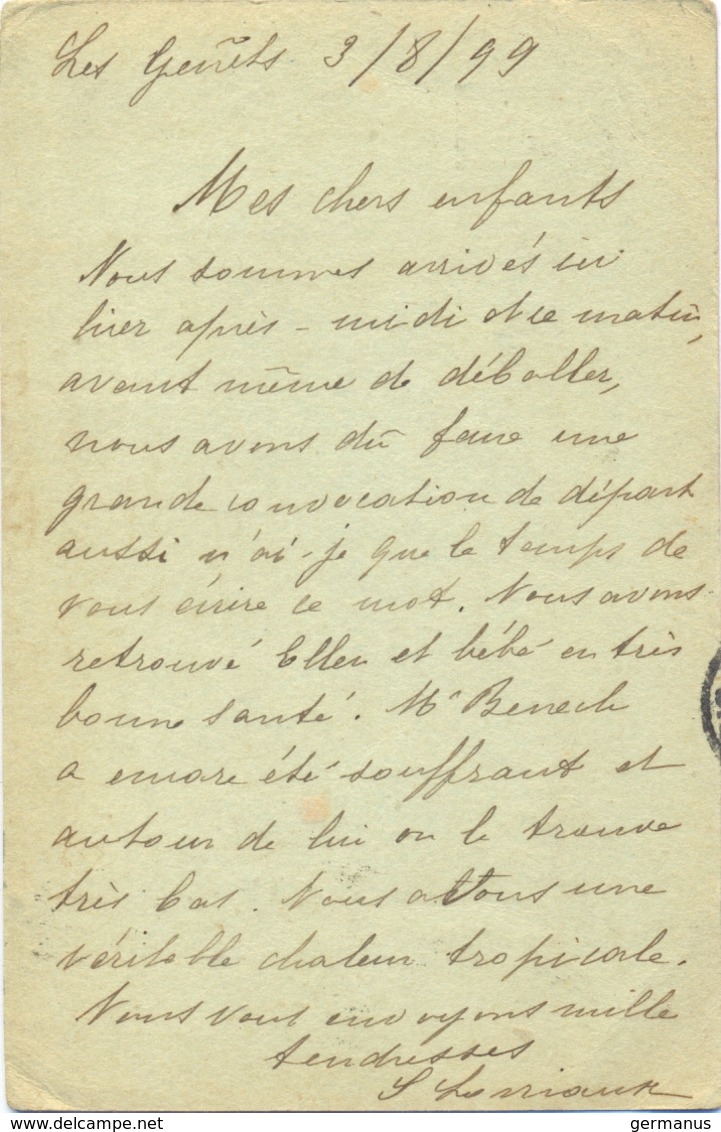 Les Genêts 3/8/99
Mes chers enfants
Nous sommes arrivés ici
hier après-midi et ce matin,
avant même de déballer,
nous avons dû faire une
grande convocation de départ
aussi n'ai-je que le temps de
vous écrire ce mot. Nous avons
retrouvé Ellen et bébé en très
bonne santé. Mr Benech
a encore été souffrant et
autour de lui on le trouve
très bas. Nous avons une
véritable chaleur tropicale.
Nous vous envoyons mille
tendresses
S Lorriaux
www.delcampe.net
germanus